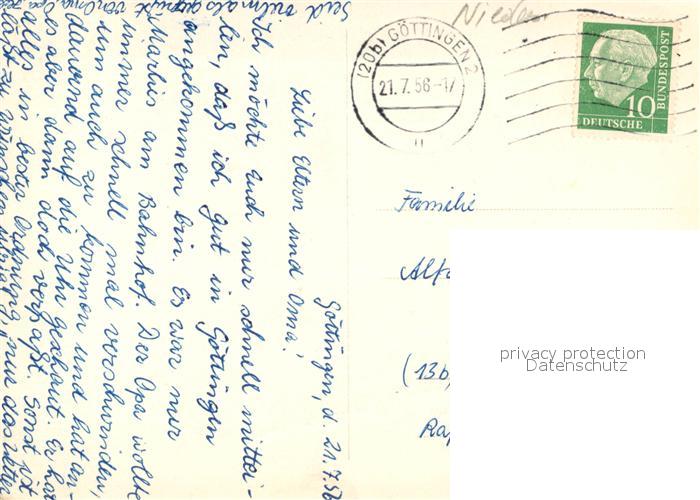 Göttingen, d. 21.7.56
Liebe Eltern und Oma!
Ich möchte Euch nur schnell mittei-
len, daß ich gut in Göttingen
angekommen bin. Es war nur
Markus am Bahnhof. Der Opa wollte
immer schnell mal verschwinden,
um auch zu kommen und hat an-
dauernd auf die Uhr geschaut. Er hat
es aber dann doch verpaßt. Sonst ist
alles in bester Ordnung, nur das Wetter
läßt zu wünschen übrig.
Seid vielmals gegrüßt von Oma, Opa
(20b) GÖTTINGEN 2
21.7.56-17
u
10
DEUTSCHE
BUNDESPOST
Familie
Alfo
(13b)
privacy protection
Datenschutz